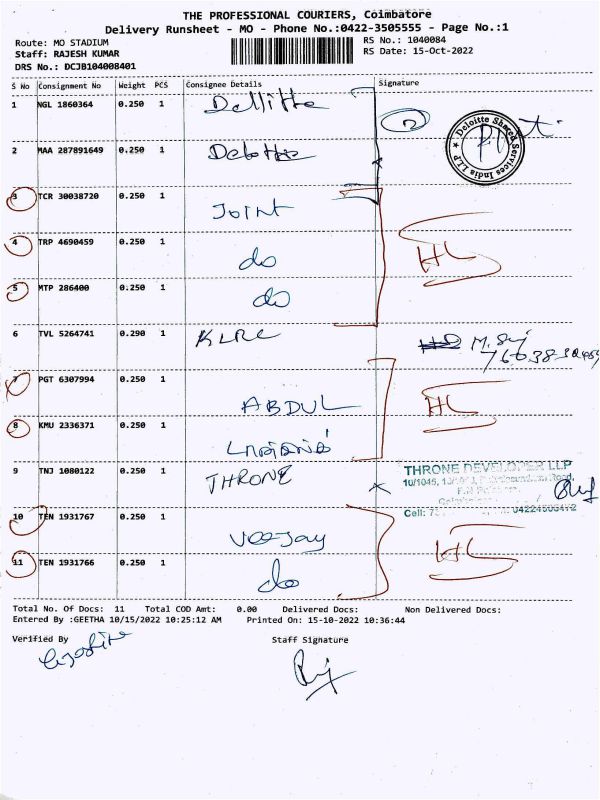 THE PROFESSIONAL COURIERS, Coimbatore
Delivery Runsheet - MO - Phone No.:0422-3505555 - Page No.:1
Route: MO STADIUM
RS No.: 1040084
Staff: RAJESH KUMAR
RS Date: 15-Oct-2022
DRS No.: DCJB104008401
S No Consignment No Weight PCS Consignee Details Signature
1 NGL 1860364 0.250 1 Dellitte
2 MAA 287891649 0.250 1 Deloitte
Deloitte Shared Services India LLP
3 TCR 30038720 0.250 1 Joint
4 TRP 4690459 0.250 1 do HL
5 MTP 286400 0.250 1 do
6 TVL 5264741 0.290 1 KLRC
7 PGT 6307994 0.250 1 ABDUL HL
8 KMU 2336371 0.250 1
9 TNJ 1080122 0.250 1 THRONE
THRONE DEVELOPER LLP
Cell:
10 TEN 1931767 0.250 1 Vee-Jay HL
11 TEN 1931766 0.250 1 do
Total No. Of Docs: 11 Total COD Amt: 0.00 Delivered Docs: Non Delivered Docs:
Entered By :GEETHA 10/15/2022 10:25:12 AM Printed On: 15-10-2022 10:36:44
Verified By Staff Signature